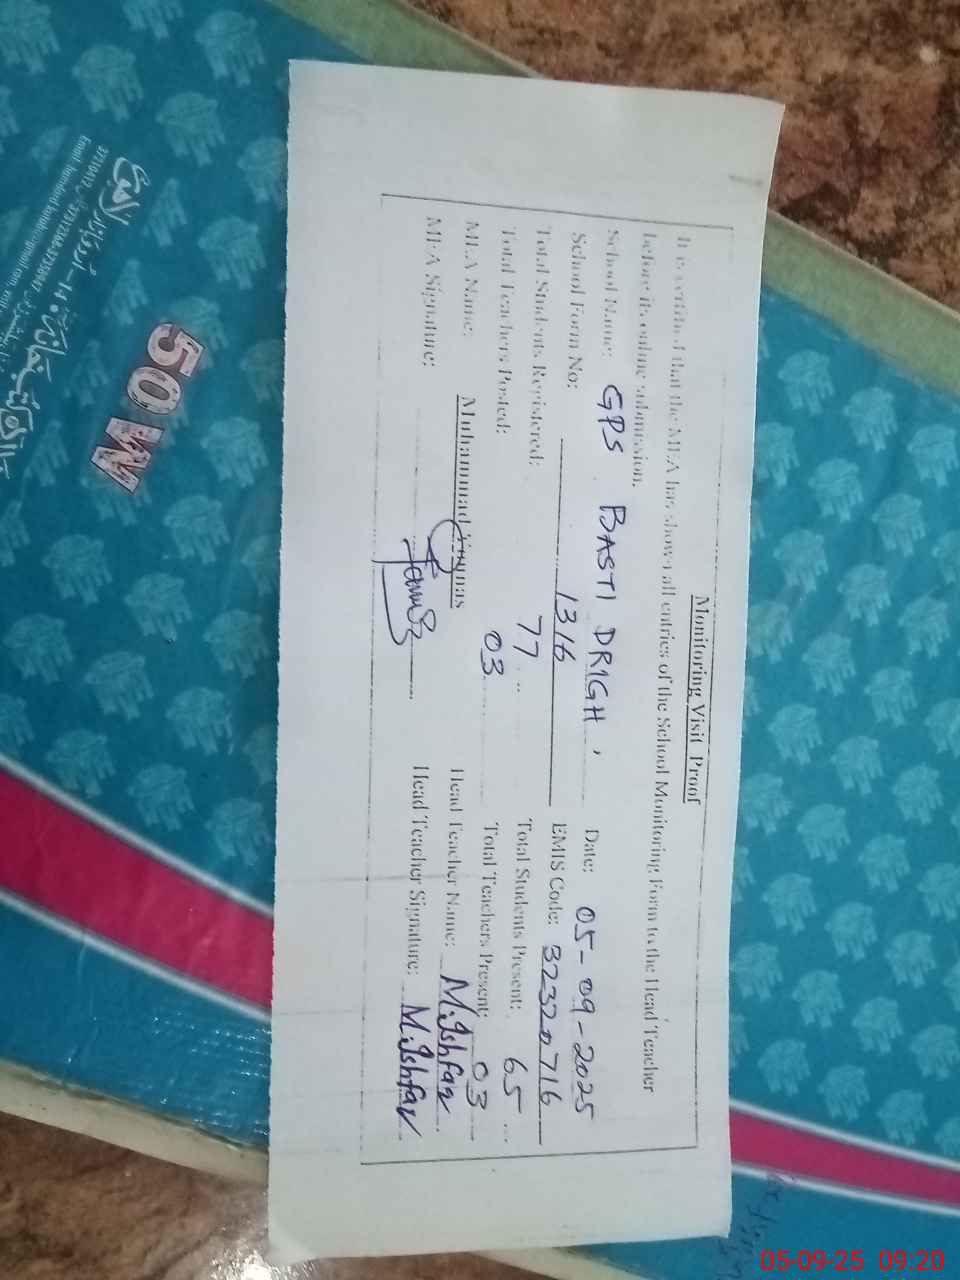 Monitoring Visit Proof
It is certified that the MEA has shown all entries of the School Monitoring Form to the Head Teacher
before its online submission.
School Name: GPS BASTI DRIGH Date: 05-09-2025
School Form No: 1316 EMIS Code: 32320716
Total Students Registered: 77 Total Students Present: 65
Total Teachers Posted: 03 Total Teachers Present: 03
MEA Name: Muhammad Head Teacher Name: M.Ishfaq
MEA Signature: Head Teacher Signature: M.Ishfaq
50 W
05-09-25 09:20